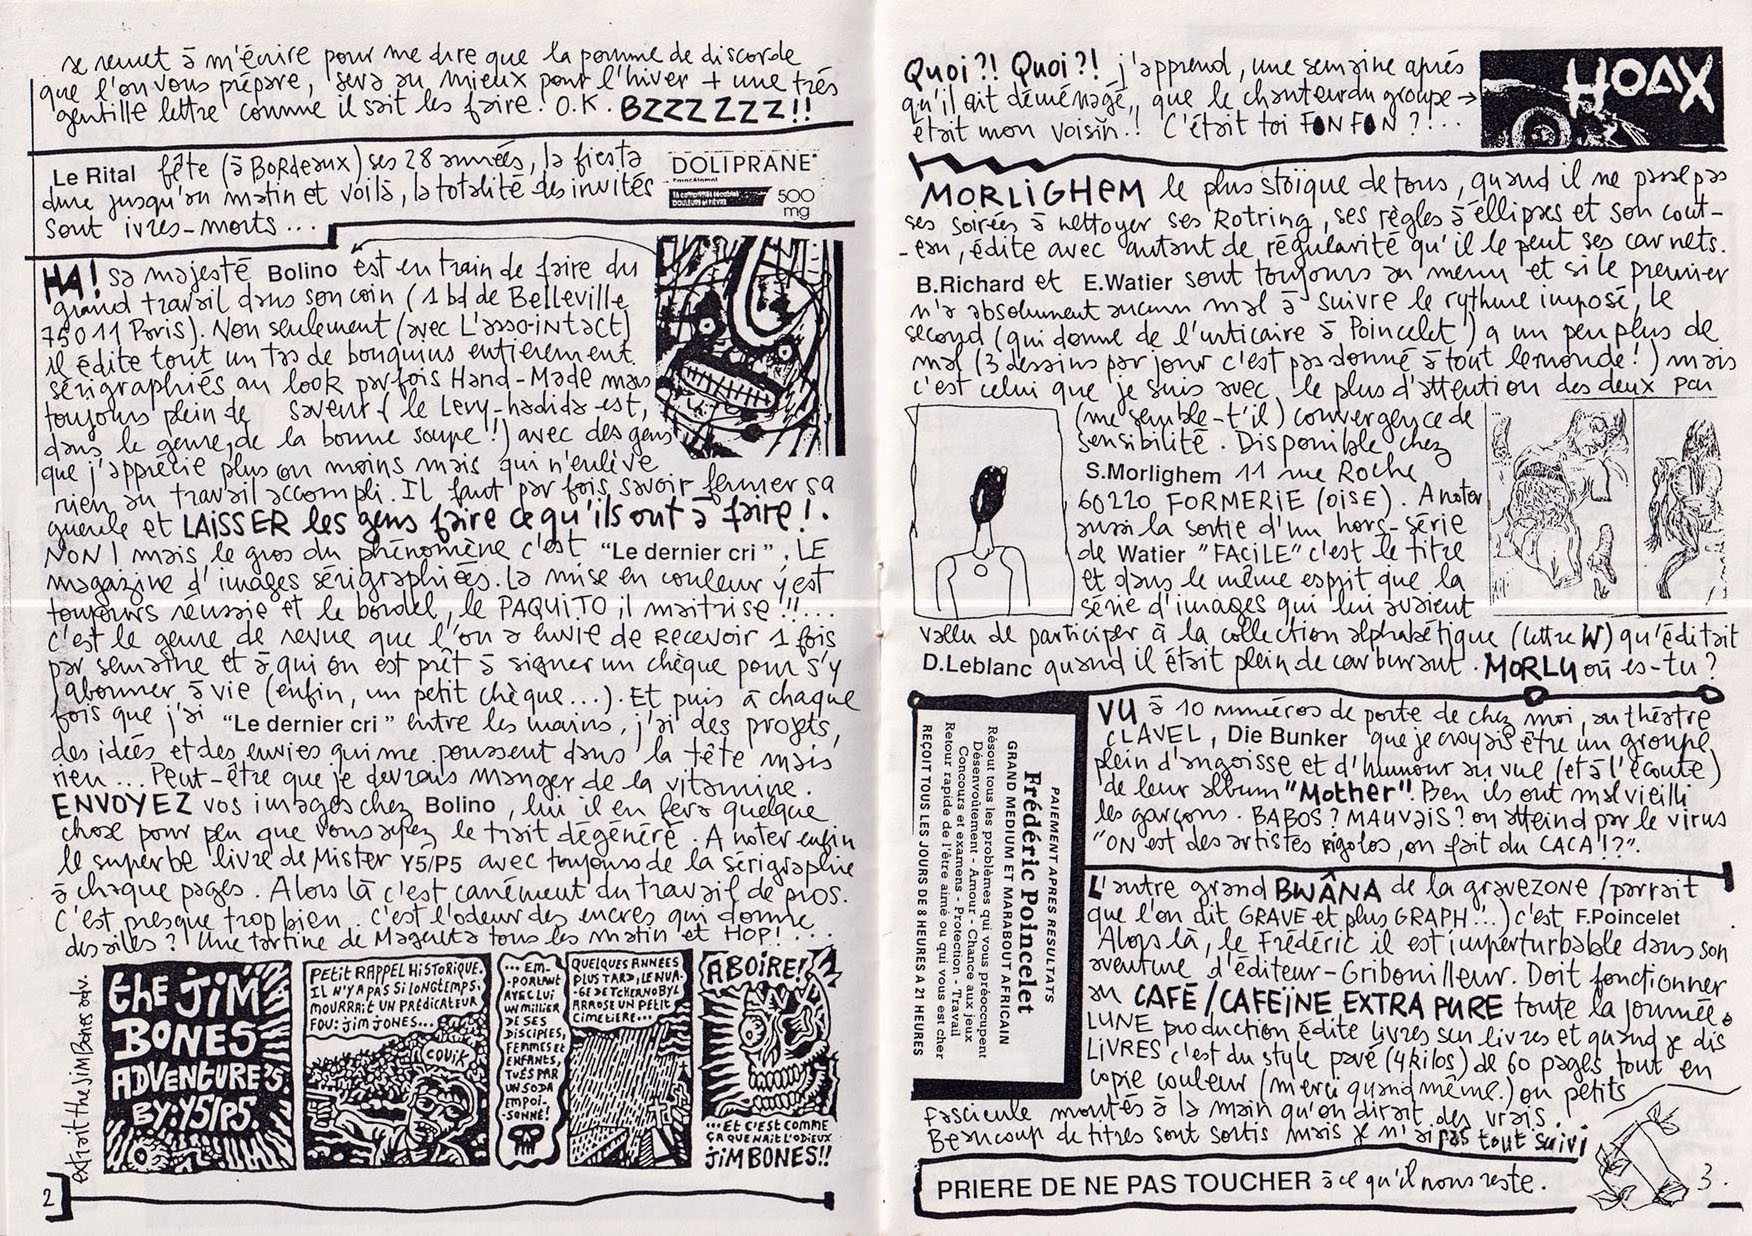 se remet à m'écrire pour me dire que la pomme de discorde
que l'on vous prépare, sera au mieux pour l'hiver + une très
gentille lettre comme il sait les faire. O.K. BZZZ ZZZ!!
Le Rital fête (à Bordeaux) ses 28 années, la fiesta
dure jusqu'au matin et voilà, la totalité des invités
sont ivres-morts...
DOLIPRANE
Paracétamol
DOULEURS et FIÈVRE
500
mg
HA! sa majesté Bolino est en train de faire du
grand travail dans son coin (1 bd de Belleville
75011 Paris). Non seulement (avec L'asso-intact)
il édite tout un tas de bouquins entièrement
sérigraphiés au look parfois Hand-Made mais
toujours plein de savent (le Levy-hadida est,
dans le genre, de la bonne soupe!) avec des gens
que j'apprécie plus ou moins mais qui n'enlève
rien au travail accompli. Il faut parfois savoir fermer sa
gueule et LAISSER les gens faire ce qu'ils ont à faire!.
NON! mais le gros du phénomène c'est "Le dernier cri", LE
magazine d'images sérigraphiées. La mise en couleur y est
toujours réussie et le bordel, le PAQUITO il maitrise!!!...
C'est le genre de revue que l'on a envie de recevoir 1 fois
par semaine et à qui on est prêt à signer un chèque pour s'y
abonner à vie (enfin, un petit chèque...). Et puis à chaque
fois que j'ai "Le dernier cri" entre les mains, j'ai des projets,
des idées et des envies qui me poussent dans la tête mais
rien... Peut-être que je devrais manger de la vitamine.
ENVOYEZ vos images chez Bolino, lui il en fera quelque
chose pour peu que vous ayez le trait dégénéré. A noter enfin
le superbe livre de Mister Y5/P5 avec toujours de la sérigraphie
à chaque pages. Alors là c'est carrément du travail de pros.
C'est presque trop bien. C'est l'odeur des encres qui donne
des ailes? Une tartine de Magenta tous les matin et HOP!...
extrait the JIM Bones adv.
the JiM
BONES
ADVENTURE'S.
BY:Y5/P5.
PETIT RAPPEL HISTORIQUE.
IL N'Y A PAS SI LONGTEMPS;
MOURRAIT UN PRÉDICATEUR
FOU: JIM JONES...
COUIK
... EM-
-PORTANT
AVEC LUI
UN MILLIER
DE SES
DISCIPLES,
FEMMES ET
ENFANTS,
TUÉS PAR
UN SODA
EMPOI-
-SONNÉ!
QUELQUES ANNÉES
PLUS TARD, LE NUA-
-GE DE TCHERNOBYL
ARROSE UN PETIT
CIMETIÈRE...
A BOIRE!
...ET C'EST COMME
ÇA QUE NAIT L'ODIEUX
JiM BONES!!
2
Quoi?! Quoi?! j'apprend, une semaine après
qu'il ait déménagé, que le chanteur du groupe →
était mon voisin.! C'était toi FONFON?!...
HOAX
MORLIGHEM le plus stoïque de tous, quand il ne passe pas
ses soirées à nettoyer ses Rotring, ses règles à éllipses et son cout-
-eau, édite avec autant de régularité qu'il le peut ses carnets.
B.Richard et E.Watier sont toujours au menu et si le premier
n'a absolument aucun mal à suivre le rythme imposé, le
second (qui donne de l'urticaire à Poincelet) a un peu plus de
mal (3 dessins par jour c'est pas donné à tout le monde!) mais
c'est celui que je suis avec le plus d'attention des deux par
(me semble-t'il) convergence de
sensibilité. Disponible chez
S.Morlighem 11 rue Roche
60220 FORMERIE (OISE). A noter
aussi la sortie d'un hors-série
de Watier "FACILE" c'est le titre
et dans le même esprit que la
série d'images qui lui avaient
vallu de participer à la collection alphabétique (lettre W) qu'éditait
D.Leblanc quand il était plein de carburant. MORLY où es-tu?
PAIEMENT APRES RESULTATS
Frédéric Poincelet
GRAND MEDIUM ET MARABOUT AFRICAIN
Résout tous les problèmes qui vous préoccupent
Désenvoutement - Amour - Chance aux jeux
Concours et examens - Protection - Travail
Retour rapide de l'être aimé ou qui vous est cher
REÇOIT TOUS LES JOURS DE 8 HEURES A 21 HEURES
VU à 10 numéros de porte de chez moi, au théatre
CLAVEL, Die Bunker que je croyais être un groupe
plein d'angoisse et d'humour au vue (et à l'écoute)
de leur album "Mother". Ben ils ont mal vieilli
les garçons. BABOS? MAUVAIS? on atteind par le virus
"ON est des artistes rigolos, on fait du CACA!?".
L'autre grand BWÂNA de la gravezone (parrait
que l'on dit GRAVE et plus GRAPH...) c'est F.Poincelet
Alors là, le Frédéric il est imperturbable dans son
aventure d'éditeur-Gribouilleur. Doit fonctionner
au CAFÉ/CAFEÏNE EXTRA PURE toute la journée.
LUNE production édite livres sur livres et quand je dis
LIVRES c'est du style pavé (4 kilos) de 60 pages tout en
copie couleur (merci quand même.) ou petits
fascicule montés à la main qu'on dirait des vrais.
Beaucoup de titres sont sortis mais je n'ai pas tout suivi
PRIERE DE NE PAS TOUCHER à ce qu'il nous reste.
3.